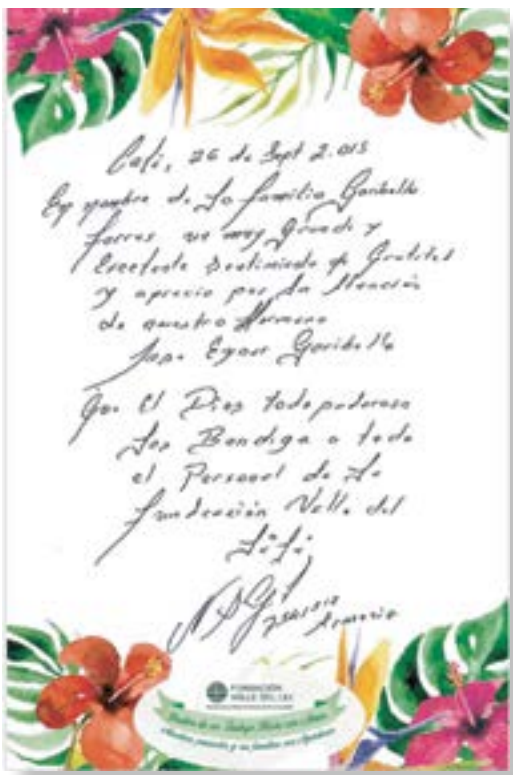 Cali, 26 de Sept 2.018
En nombre de La familia Garibello
un muy Grande y
Excelente Sentimiento de Gratitud
y aprecio por La Atención
de nuestro Hermano
Jose Garibello
Que El Dios todo poderoso
Los Bendiga a todo
el Personal de La
fundación Valle del
Lili
FUNDACIÓN
VALLE DEL LILI